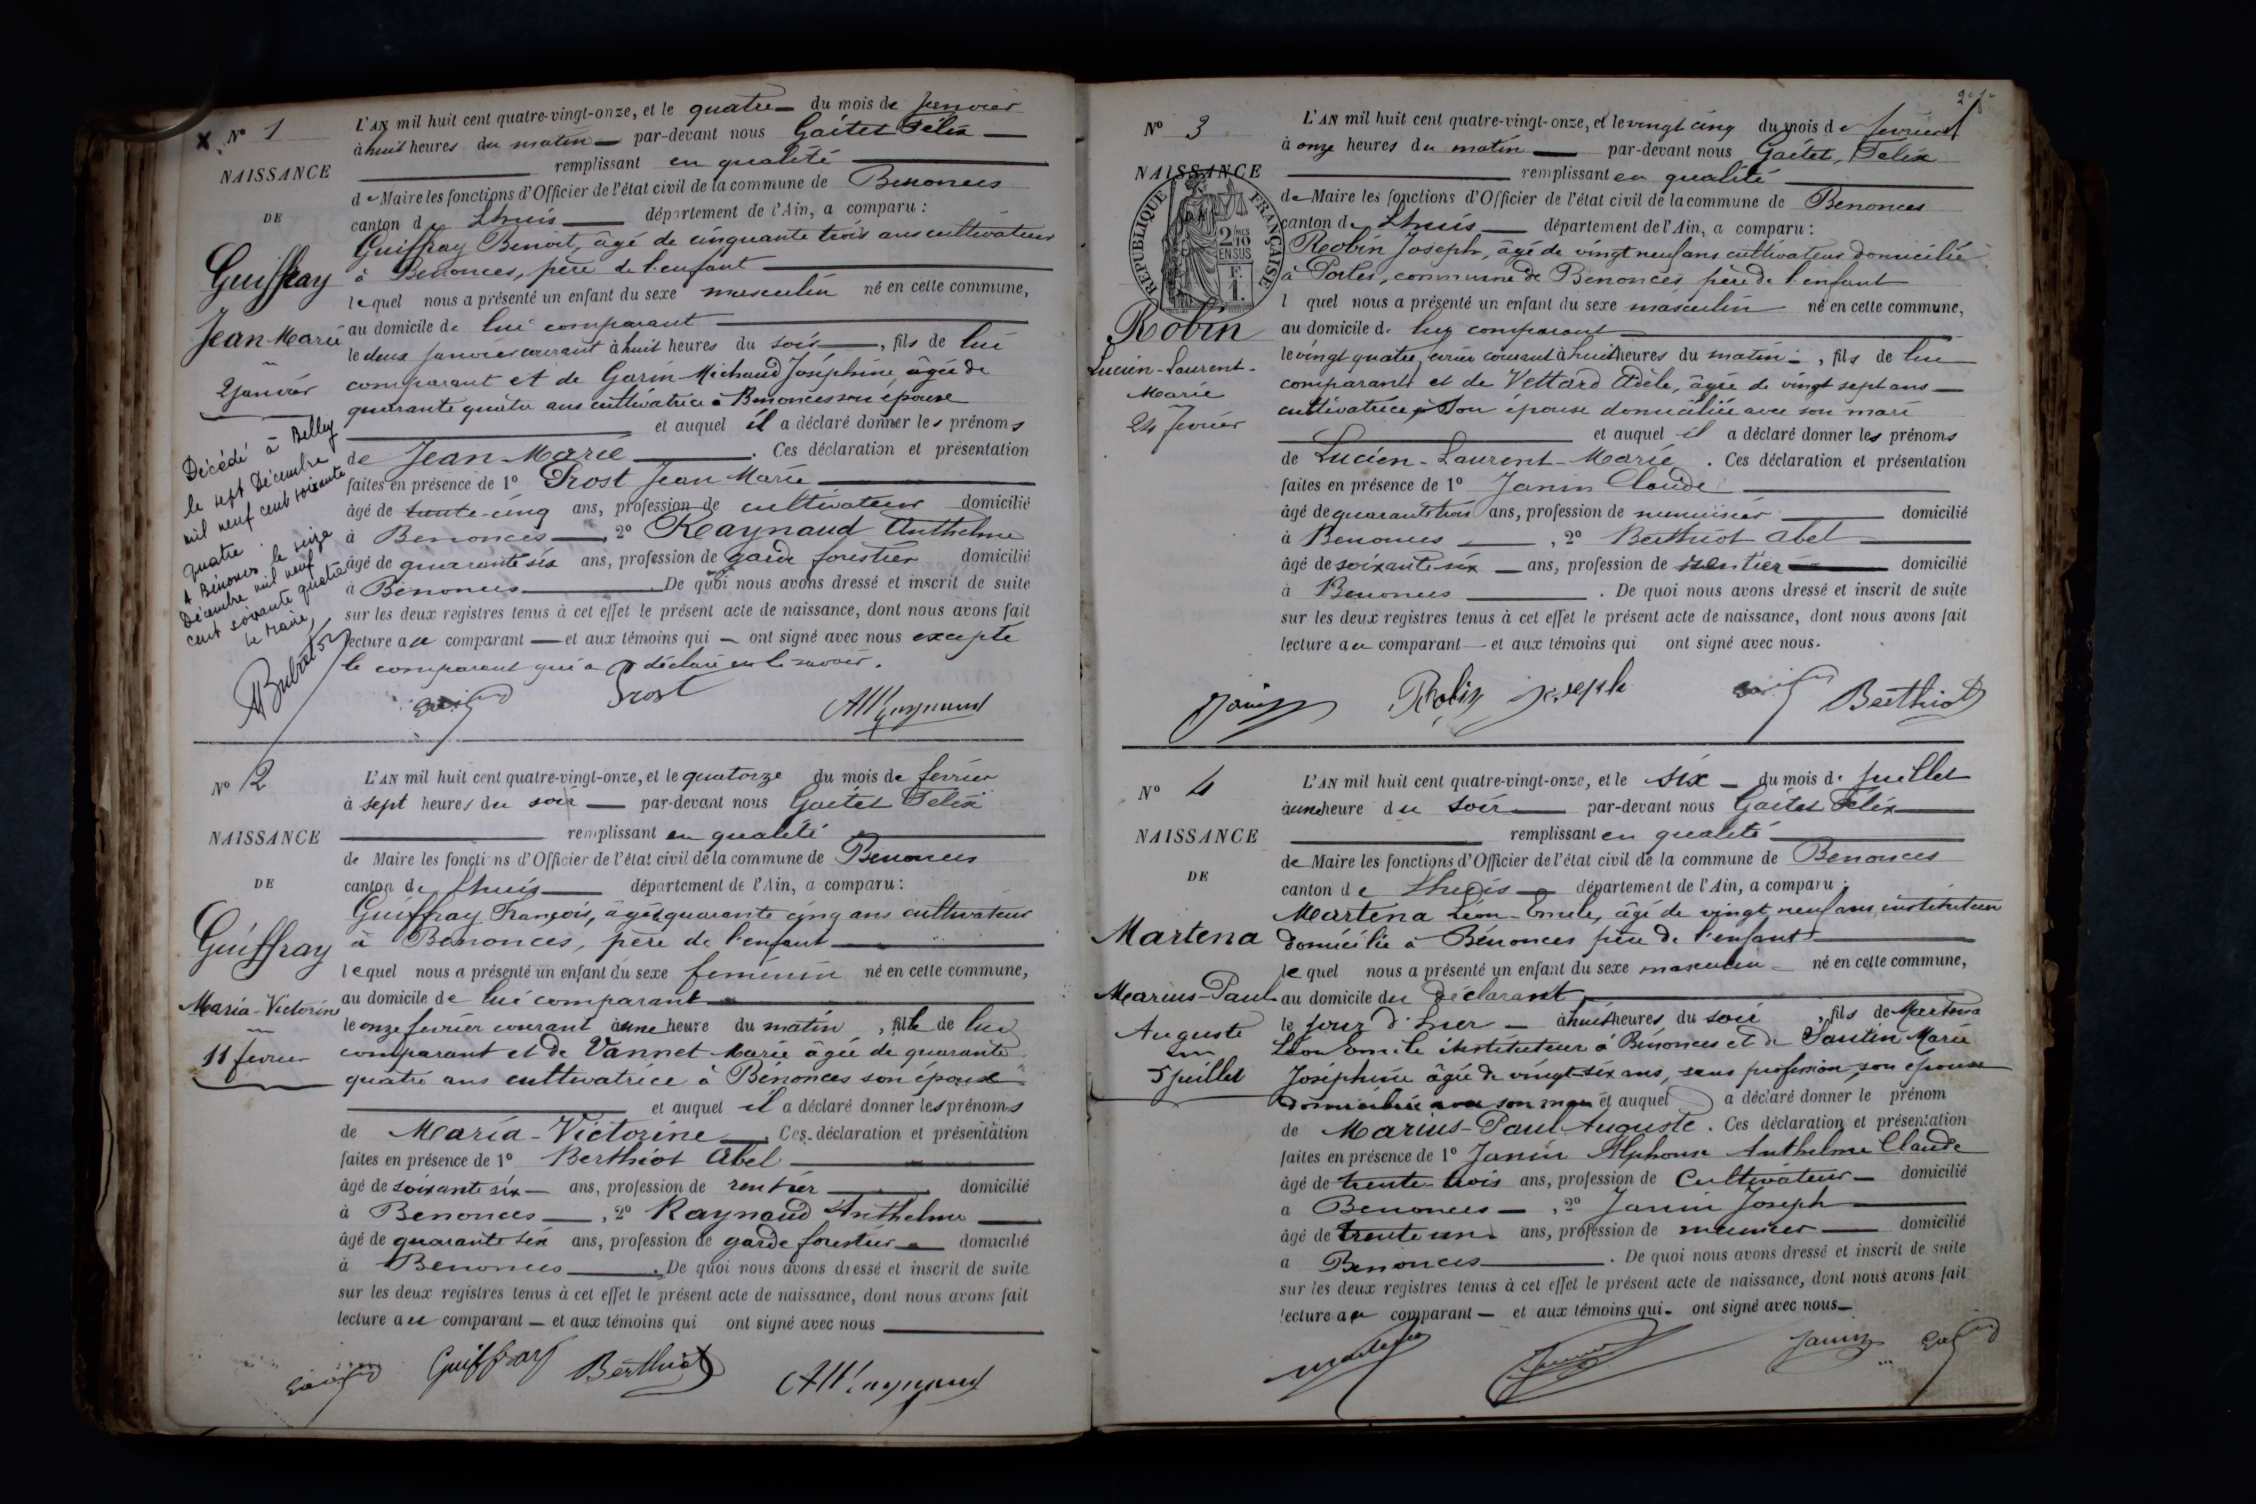 N° 1
NAISSANCE
DE
Guiffray
Jean-Marie
2 janvier
Décédé à Belley
le sept Décembre
mil neuf cent soixante
quatre.
A Bénonces le seize
Décembre mil neuf
cent soixante quatre
Le Maire,
L'AN mil huit cent quatre-vingt-onze, et le quatre du mois de Janvier
à huit heures du matin par-devant nous Gaîtet Félix
remplissant en qualité
de Maire les fonctions d'Officier de l'état civil de la commune de Benonces
canton de Lhuis département de l'Ain, a comparu :
Guiffray Benoit, âgé de cinquante trois ans cultivateur
à Benonces, père de l'enfant
lequel nous a présenté un enfant du sexe masculin né en cette commune,
au domicile de lui comparant
le deux janvier courant à huit heures du soir, fils de lui
comparant et de Garin-Michaud Joséphine, âgée de
quarante quatre ans cultivatrice à Benonces son épouse
et auquel il a déclaré donner les prénoms
de Jean-Marie. Ces déclaration et présentation
faites en présence de 1° Prost Jean Marie
âgé de trente-cinq ans, profession de cultivateur domicilié
à Benonces, 2° Raynaud Anthelme
âgé de quarante six ans, profession de garde forestier domicilié
à Benonces. De quoi nous avons dressé et inscrit de suite
sur les deux registres tenus à cet effet le présent acte de naissance, dont nous avons fait
lecture au comparant et aux témoins qui ont signé avec nous excepté
le comparant qui a déclaré ne le savoir.
Prost
N° 2
NAISSANCE
DE
Guiffray
Maria-Victorine
11 fevrier
L'AN mil huit cent quatre-vingt-onze, et le quatorze du mois de fevrier
à sept heures du soir par-devant nous Gaîtet Félix
remplissant en qualité
de Maire les fonctions d'Officier de l'état civil de la commune de Benonces
canton de Lhuis département de l'Ain, a comparu :
Guiffray François, âgé quarante cinq ans cultivateur
à Benonces, père de l'enfant
lequel nous a présenté un enfant du sexe feminin né en cette commune,
au domicile de lui comparant
le onze fevrier courant à une heure du matin, fille de lui
comparant et de Vannet Marie âgée de quarante
quatre ans cultivatrice à Bénonces son épouse
et auquel il a déclaré donner les prénoms
de Maria-Victorine. Ces déclaration et présentation
faites en présence de 1° Berthiot Abel
âgé de soixante six ans, profession de rentier domicilié
à Benonces, 2° Raynaud Anthelme
âgé de quarante six ans, profession de garde forestier domicilié
à Benonces. De quoi nous avons dressé et inscrit de suite
sur les deux registres tenus à cet effet le présent acte de naissance, dont nous avons fait
lecture au comparant et aux témoins qui ont signé avec nous
Guiffray Berthiot
N° 3
NAISSANCE
RÉPUBLIQUE FRANÇAISE
Robin
Lucien-Laurent-
Marie
24 Février
L'AN mil huit cent quatre-vingt-onze, et le vingt cinq du mois de fevrier
à onze heures du matin par-devant nous Gaîtet, Félix
remplissant en qualité
de Maire les fonctions d'Officier de l'état civil de la commune de Benonces
canton de Lhuis département de l'Ain, a comparu :
Robin Joseph, âgé de vingt neuf ans cultivateur domicilié
à Portes, commune de Benonces père de l'enfant
l quel nous a présenté un enfant du sexe masculin né en cette commune,
au domicile d. luy comparant
le vingt quatre fevrier courant à huit heures du matin, fils de lui
comparant et de Vettard Adèle, âgée de vingt sept ans
cultivatrice, son épouse domiciliée avec son mari
et auquel il a déclaré donner les prénoms
de Lucien-Laurent-Marie. Ces déclaration et présentation
faites en présence de 1° Janin Claude
âgé de quarante trois ans, profession de menuisier domicilié
à Benonces, 2° Berthiot Abel
âgé de soixante six ans, profession de rentier domicilié
à Benonces. De quoi nous avons dressé et inscrit de suite
sur les deux registres tenus à cet effet le présent acte de naissance, dont nous avons fait
lecture au comparant et aux témoins qui ont signé avec nous.
Janin Robin Joseph Berthiot
N° 4
NAISSANCE
DE
Martena
Marius-Paul
Auguste
5 juillet
L'AN mil huit cent quatre-vingt-onze, et le six du mois d. Juillet
à une heure du soir par-devant nous Gaîtet Félix
remplissant en qualité
de Maire les fonctions d'Officier de l'état civil de la commune de Benonces
canton de Lhuis département de l'Ain, a comparu :
Martena Léon-Emile, âgé de vingt neuf ans, instituteur
domicilié à Bénonces père de l'enfant
lequel nous a présenté un enfant du sexe masculin né en cette commune,
au domicile du déclarant
le jour d'hier à huit heures du soir, fils de Martena
Léon Emile instituteur à Bénonces et de Santin Marie
Joséphine âgée de vingt-six ans, sans profession, son épouse
domiciliée avec son mari et auquel a déclaré donner le prénom
de Marius-Paul-Auguste. Ces déclaration et présentation
faites en présence de 1° Janin Alphonse Anthelme Claude
âgé de trente-trois ans, profession de Cultivateur domicilié
à Benonces, 2° Janin Joseph
âgé de trente un ans, profession de meunier domicilié
à Benonces. De quoi nous avons dressé et inscrit de suite
sur les deux registres tenus à cet effet le présent acte de naissance, dont nous avons fait
lecture au comparant et aux témoins qui ont signé avec nous
Janin